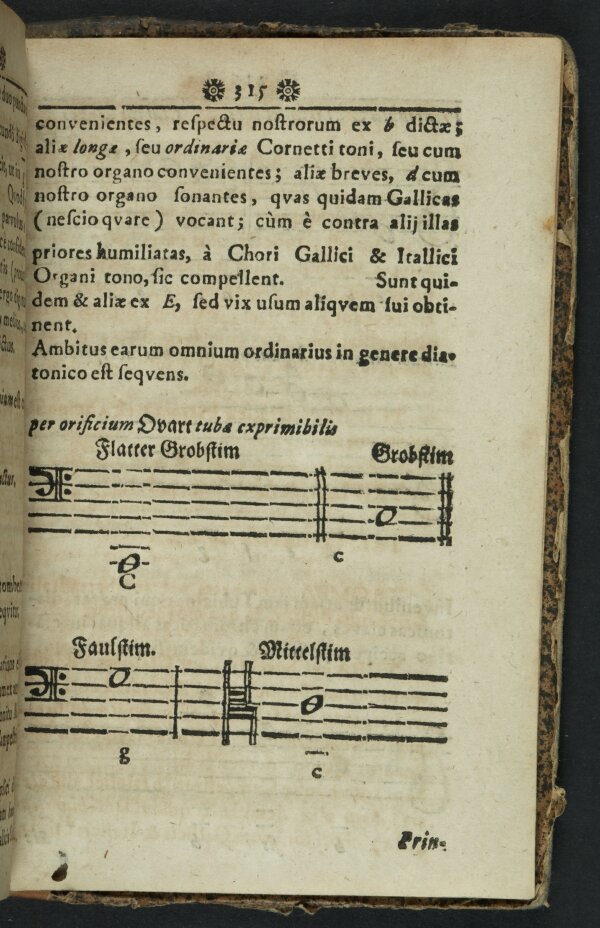 315
convenientes, reſpectu noſtrorum ex b dictæ;
aliæ longæ, ſeu ordinariæ Cornetti toni, ſeu cum
noſtro organo convenientes; aliæ breves, d cum
noſtro organo ſonantes, qvas quidam Gallicas
(neſcio qvare) vocant; cùm è contra alij illas
priores humiliatas, à Chori Gallici & Itallici
Organi tono, ſic compellent. Sunt qui-
dem & aliæ ex E, ſed vix uſum aliqvem ſui obti-
nent.
Ambitus earum omnium ordinarius in genere dia-
tonico eſt ſeqvens.
per orificium Qvart tubæ exprimibilis
Flatter Grobſtim Grobſtim
C c
Faulſtim. Mittelſtim
g c
Prin-